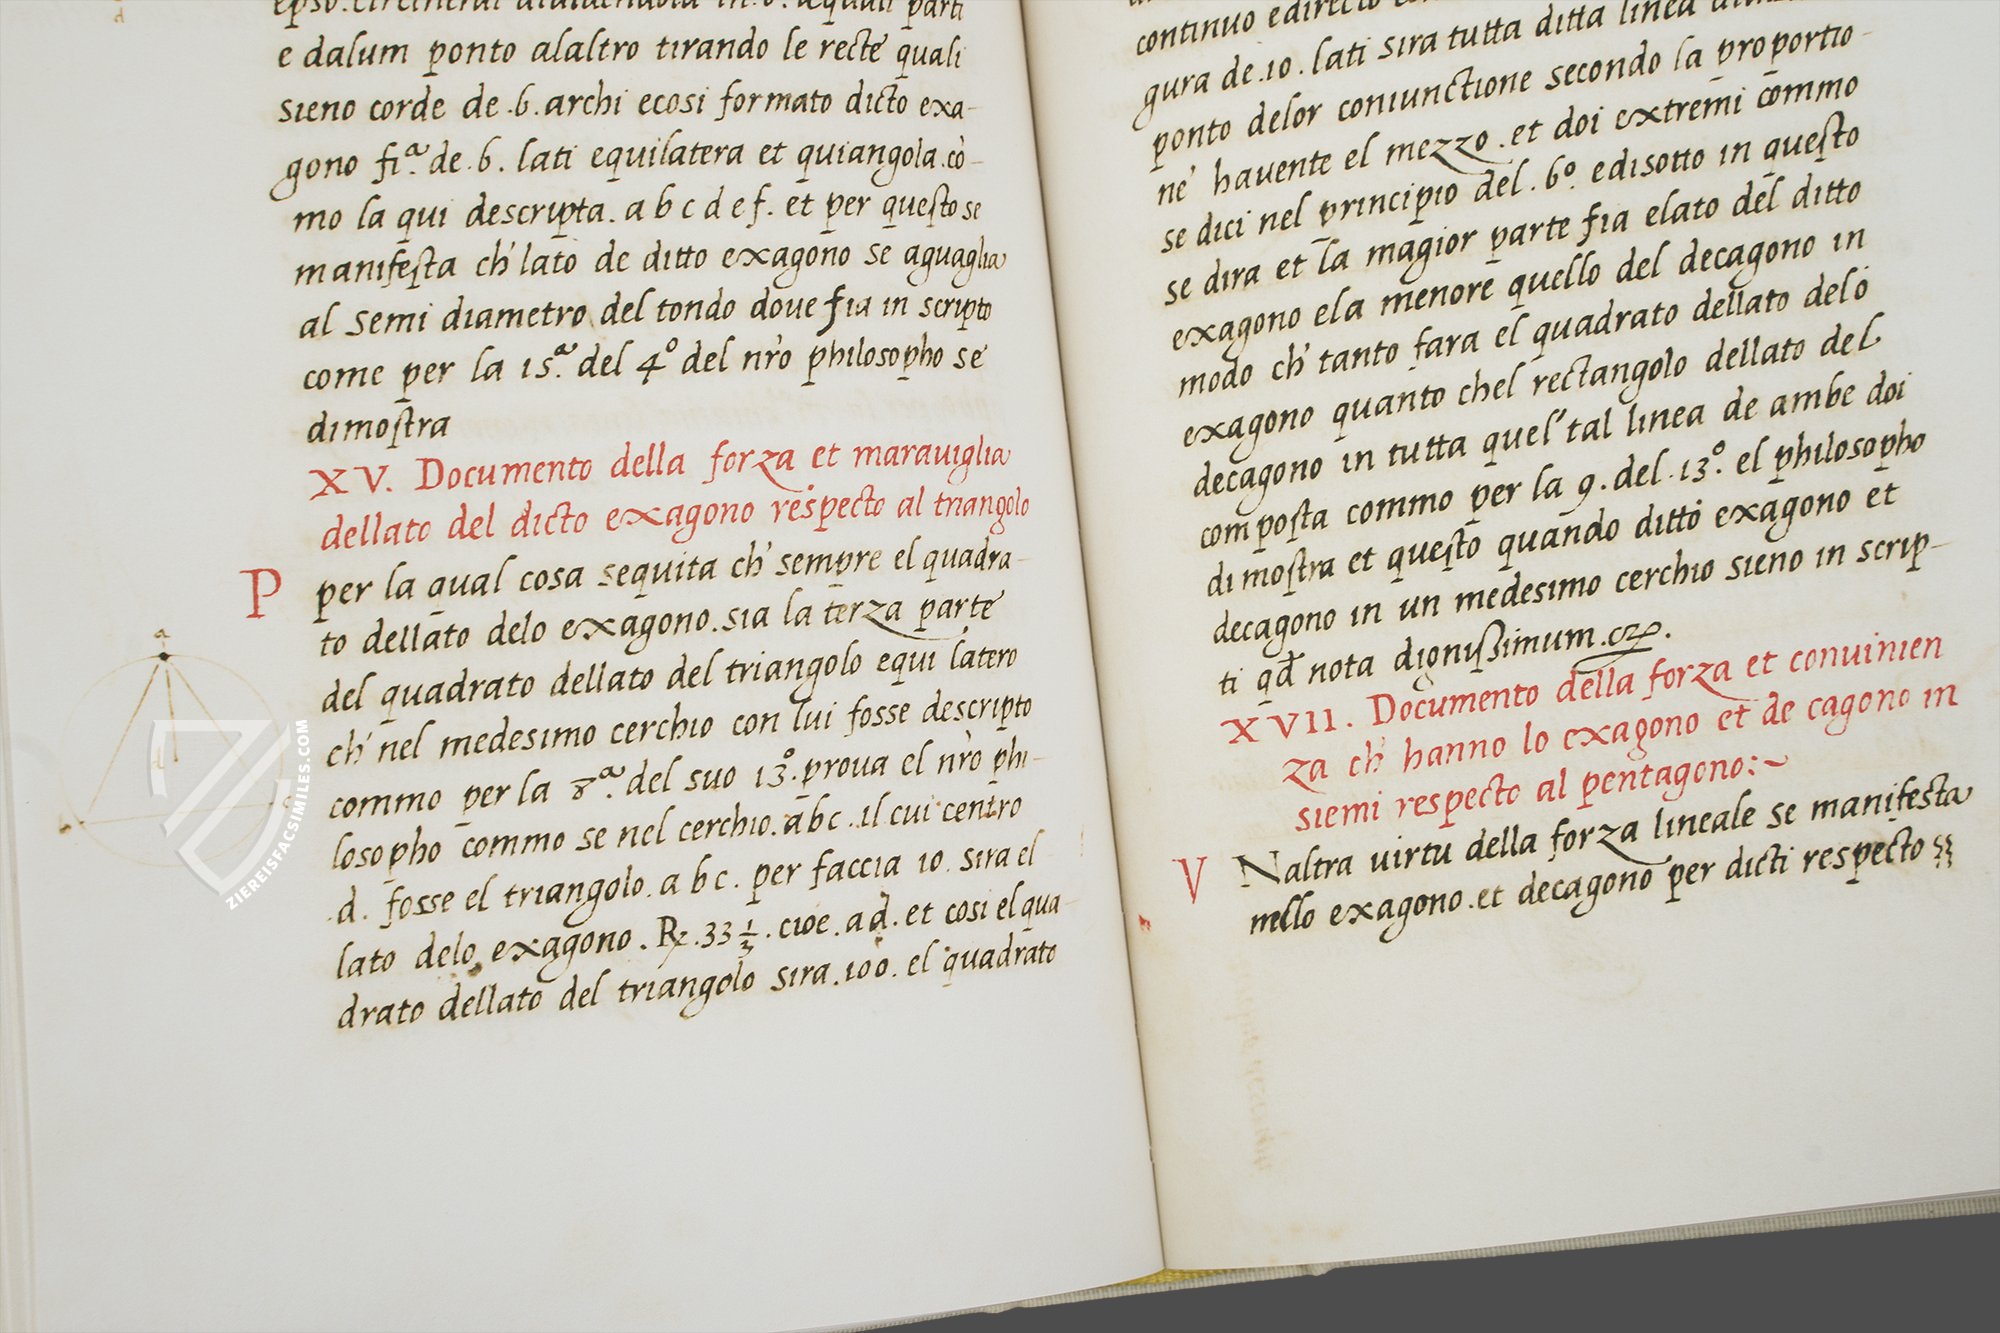 e dalum ponto alaltro tirando le recte quali
sieno corde de .6. archi ecosi formato dicto exa-
gono fiª. de .6. lati equilatera et quiangola.cò-
mo la qui descripta. a b c d e f. et per questo se
manifesta ch' lato de ditto exagono se aguaglia
al semi diametro del tondo doue fia in scripto
come per la 15ª. del 4º del nr̃o philosopho se
dimostra
XV. Documento della forza et marauiglia
dellato del dicto exagono respecto al triangolo
P per la qual cosa sequita ch' sempre el quadra-
to dellato delo exagono. sia la terza parte
del quadrato dellato del triangolo equi latero
ch' nel medesimo cerchio con lui fosse descripto
commo per la 8ª. del suo 13º. proua el nr̃o phi-
losopho commo se nel cerchio. abc. il cui centro
.d. fosse el triangolo. a b c. per faccia 10. sira el
lato delo exagono. R. 33 1/3. cioe. a d. et cosi el qua-
drato dellato del triangolo sira .100. el quadrato
a
d
ZIEREISFACSIMILES.COM
continuo edirecto
gura de .10. lati sira tutta ditta linea
ponto delor coniunctione secondo la proportio-
ne' hauente el mezzo. et doi extremi commo
se dici nel principio del .6º. edisotto in questo
se dira et la magior parte fia elato del ditto
exagono ela menore quello del decagono in
modo ch' tanto fara el quadrato dellato delo
exagono quanto chel rectangolo dellato del
decagono in tutta quel' tal linea de ambe doi
composta commo per la 9. del .13º. el philosopho
dimostra et questo quando ditto exagono et
decagono in un medesimo cerchio sieno in scrip-
ti qd̃ nota dignissimum.
XVII. Documento della forza et conuinien
za ch' hanno lo exagono et de cagono in
siemi respecto al pentagono:~
V Naltra uirtu della forza lineale se manifesta
nello exagono .et decagono per dicti respecto